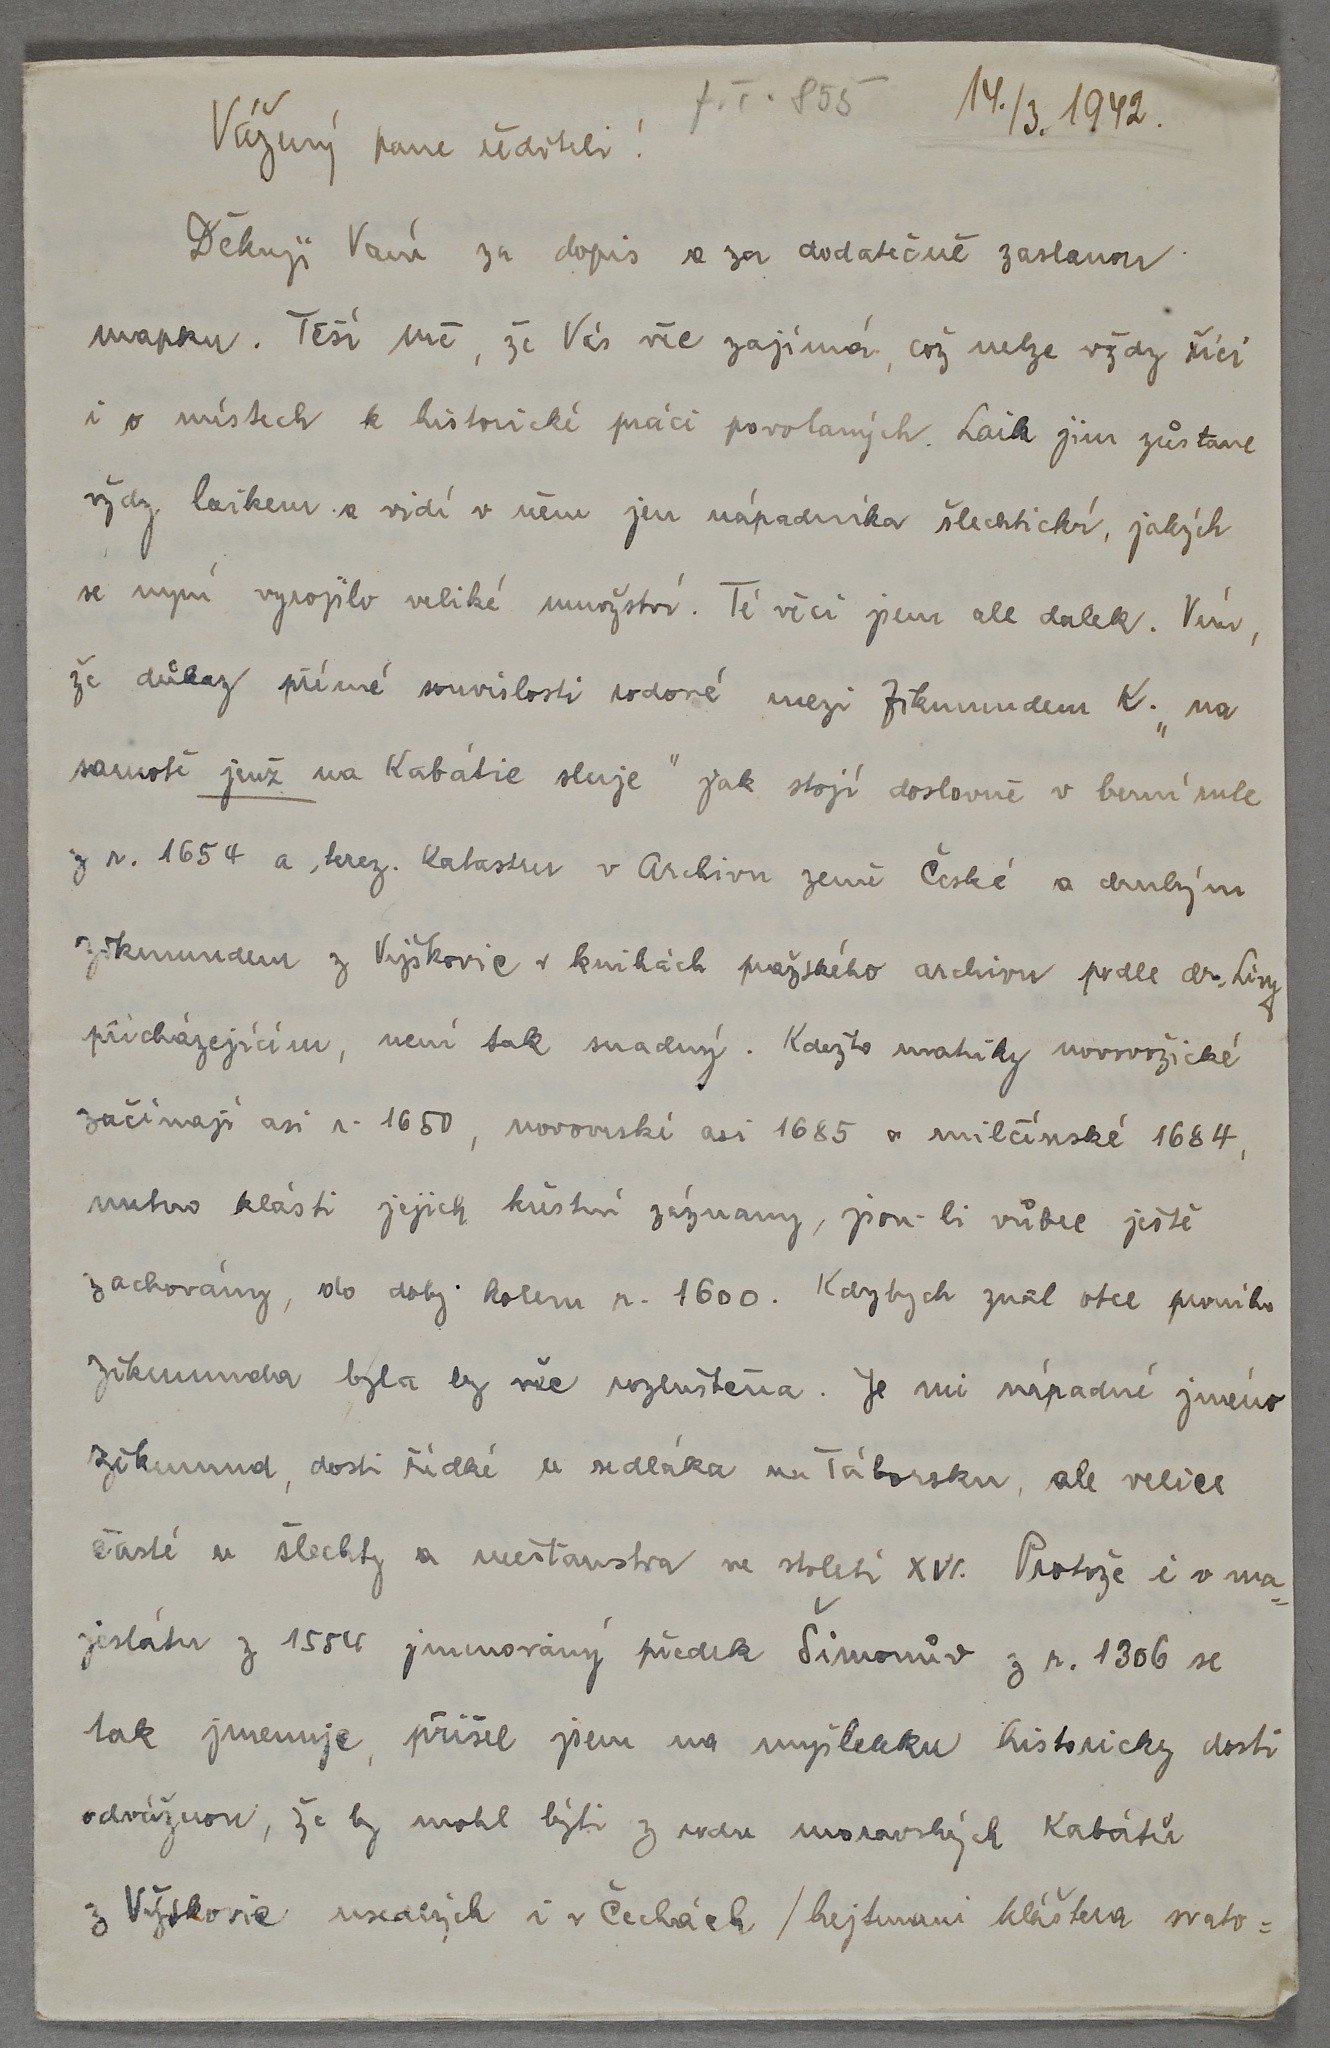 855 14./3. 1942.
Vážený pane řediteli!
Děkuji Vám za dopis a za dodatečně zaslanou
mapku. Těší mě, že Vás věc zajímá, což nelze vždy říci
i o místech k historické práci povolaných. Laik jim zůstane
vždy laikem a vidí v něm jen nápadníka šlechtictví, jakých
se nyní vyrojilo veliké množství. Té věci jsem ale dalek. Vím,
že důkaz přímé souvislosti rodové mezi Zikmundem K. „na
samotě jenž na Kabátie sluje" jak stojí doslovně v berní rule
z r. 1654 a terez. Katastru v Archivu země České a druhým
Zikmundem z Vyškovic v knihách pražského archivu podle dr. Lívy
přicházejícím, není tak snadný. Kdežto matriky novovožické
začínají asi r. 1650, novoveské asi 1685 a milčínské 1684,
nutno klásti jejich křestní záznamy, jsou-li vůbec ještě
zachovány, do doby kolem r. 1600. Kdybych znal otce prvního
Zikmunda byla by věc rozluštěna. Je mi nápadné jméno
Zikmund, dosti řídké u sedláka na Táborsku, ale velice
časté u šlechty a měšťanstva ve století XVI. Protože i v ma=
jestátu z 1554 jmenovaný předek Šimonův z r. 1306 se
tak jmenuje, přišel jsem na myšlenku historicky dosti
odvážnou, že by mohl býti z rodu moravských Kabátů
z Vyškovic usedlých i v Čechách /hejtmani kláštera svato=